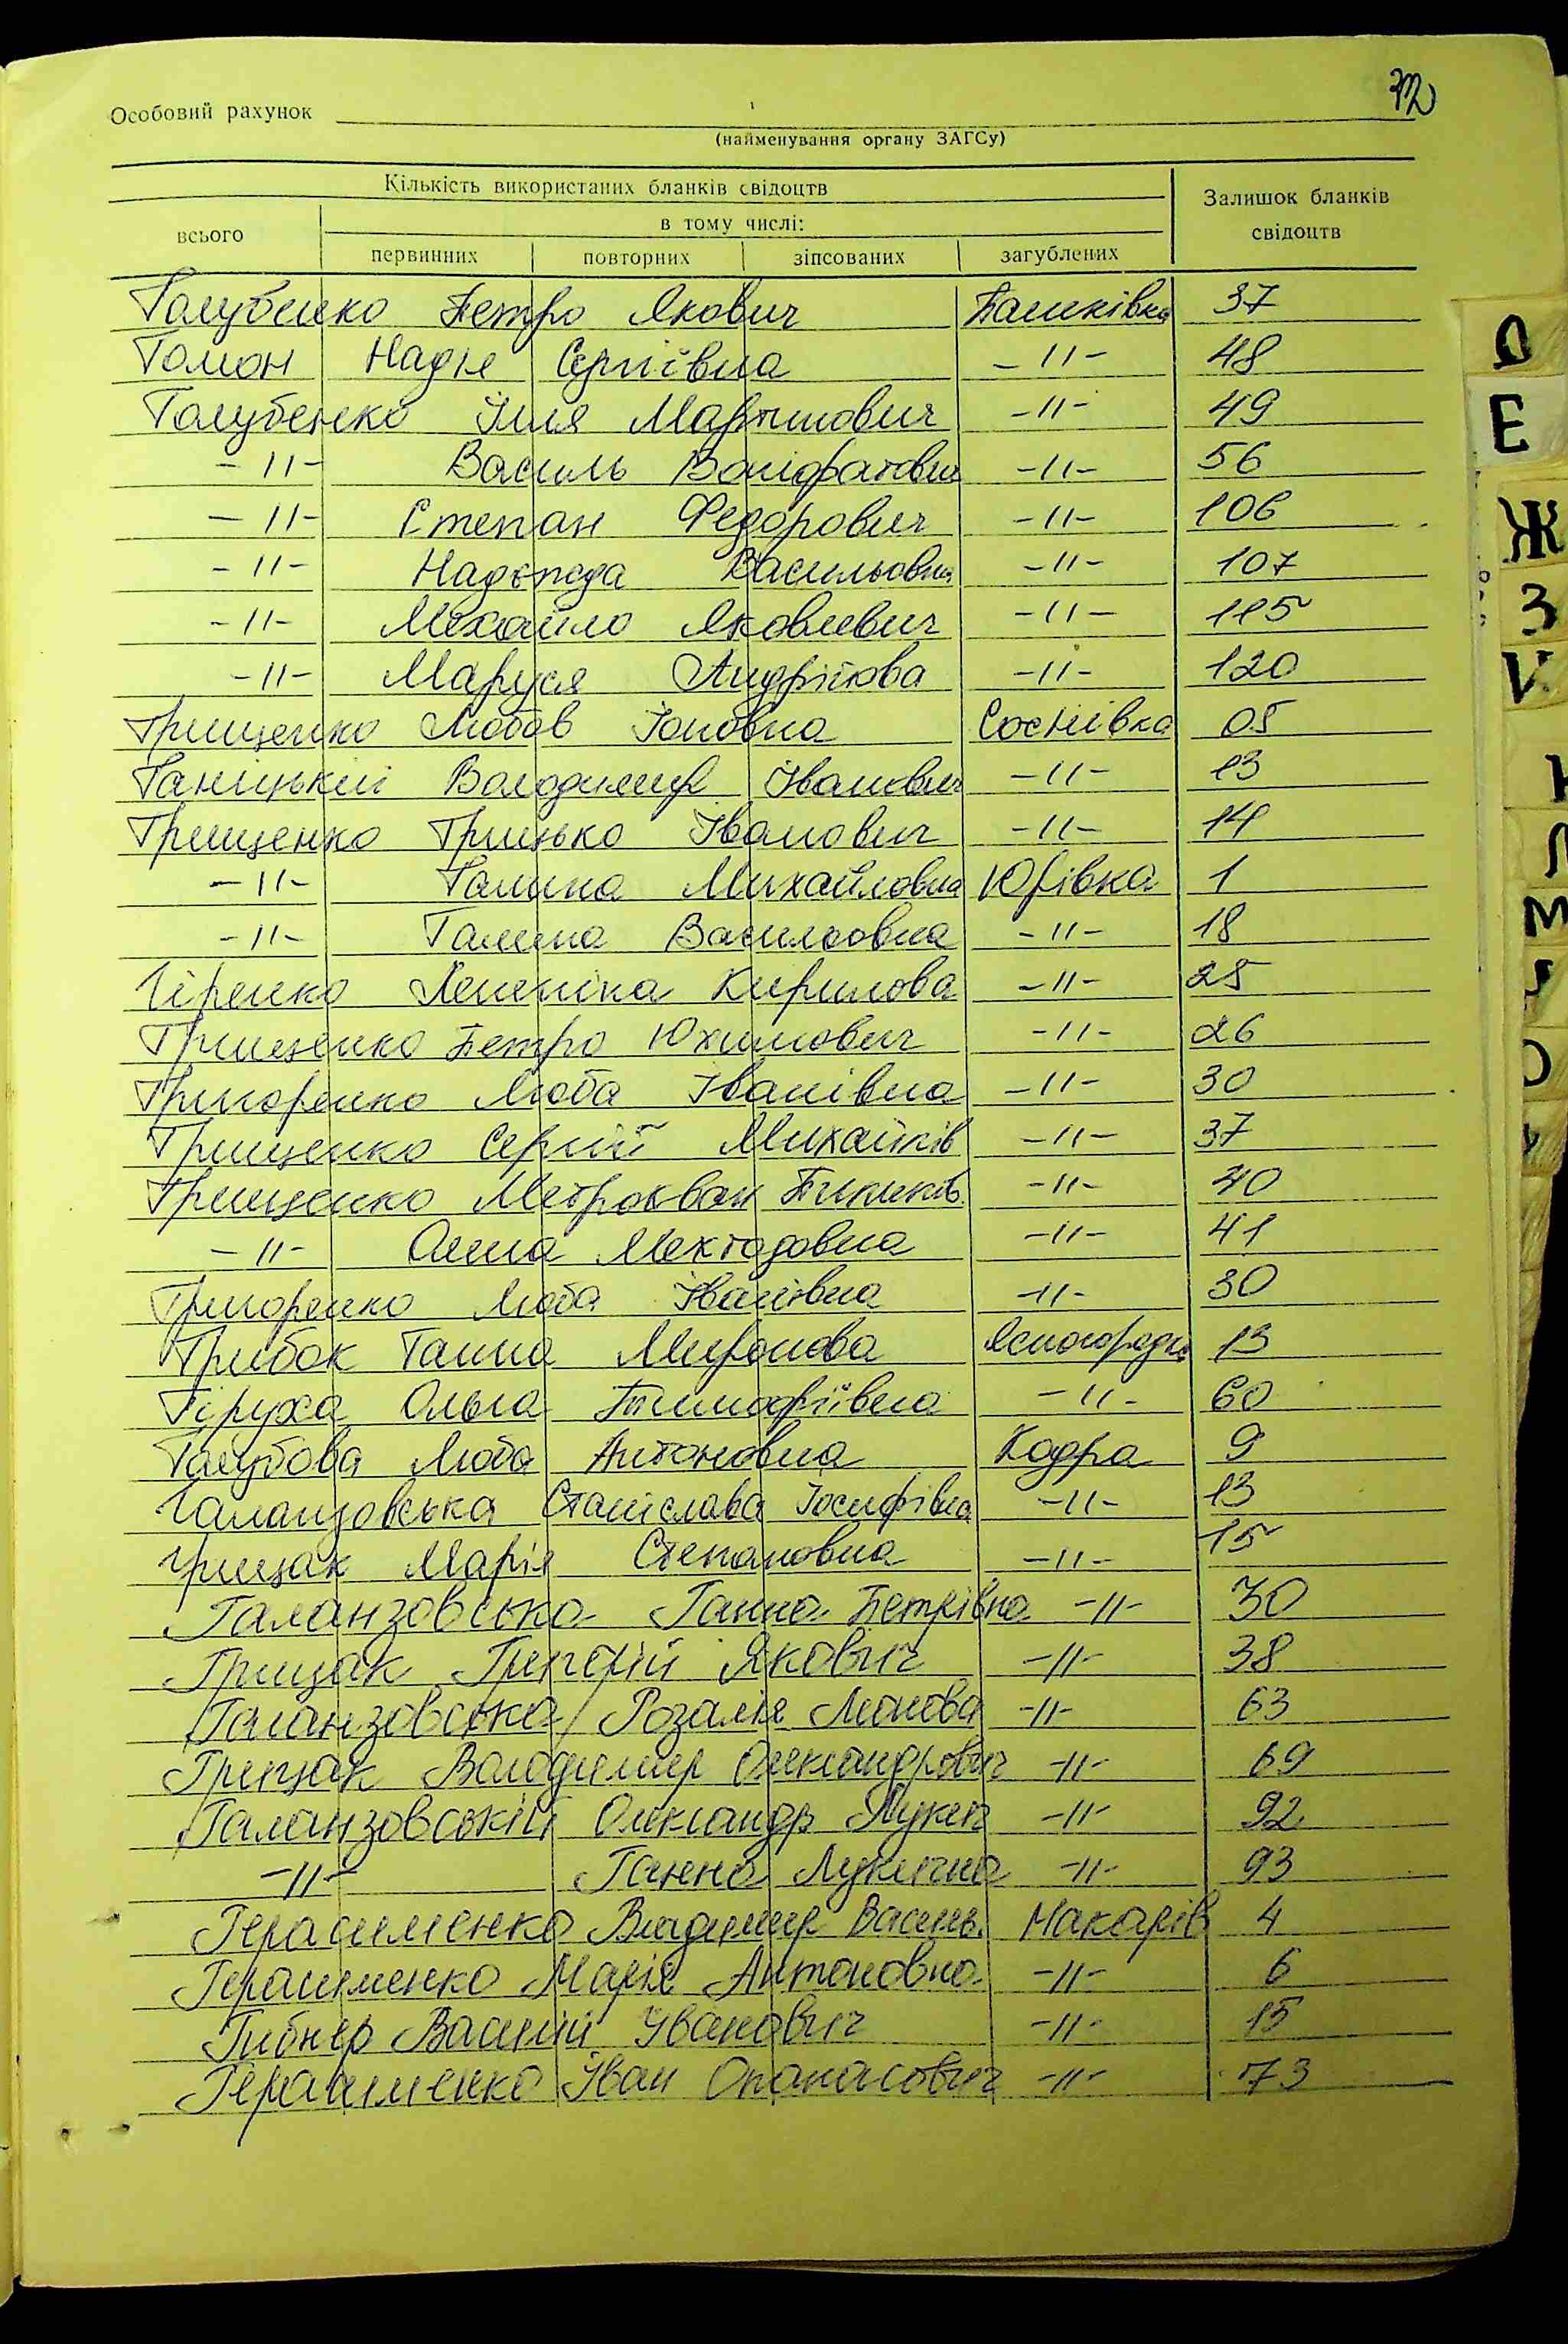 Особовий рахунок
(найменування органу ЗАГСу)
Кількість використаних бланків свідоцтв
Залишок бланків свідоцтв
всього
в тому числі:
первинних повторних зіпсованих загублених
Голубенко Петро Якович 37
Гомон Надія Сергіївна -11- 48
Голубенко Ілля Мартинович -11- 49
-11- Василь -11- 56
-11- Степан Федорович -11- 106
-11- Надежда Васильовна -11- 107
-11- Михайло Яковлевич -11- 115
-11- Маруся Андрійова -11- 120
Грищенко Любов Іоновна Соснівка 05
Ганіцький Володимир Іванович -11- 13
Грищенко Грицько Іванович -11- 14
-11- Галина Михайловна Юрівка 1
-11- Галина Васильовна -11- 18
Гіренко Кирилова -11- 25
Грищенко Петро Юхимович -11- 26
Григоренко Люба Іванівна -11- 30
Грищенко Сергій Михайлів -11- 37
Грищенко -11- 40
-11- -11- 41
Григоренко Люба Іванівна -11- 30
Грибок Ганна Миронова Ясногородка 13
Гіруха Ольга Тимофіївна -11- 60
Голубова Люба Антоновна Кодра 9
Галанзовська Станіслава Іосифівна -11- 13
Грищак Марія Степановна -11- 15
Галанзовська Ганна Петрівна -11- 30
Грицак Григорій Якович -11- 38
Галанзовська Розалія Леонова -11- 63
Грицак Володимир Олександрович -11- 69
Галанзовський Олександр Лукич -11- 92
-11- Ганна Лукична -11- 93
Герасименко Владимир Василь. Макарів 4
Герасименко Марія Антоновна -11- 6
Гибнер Василий Іванович -11- 15
Герасименко Іван Опанасович -11- 73
Д
Е
Ж
З
М